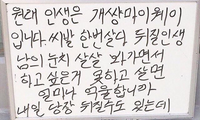 원래 인생은 개샹마이웨이
입니다. 씨발 한번살다 뒤질인생
남의 눈치 살살 봐가면서
하고 싶은거 못하고 살면
얼마나 억울합니까
내일 당장 뒤질수도 있는데